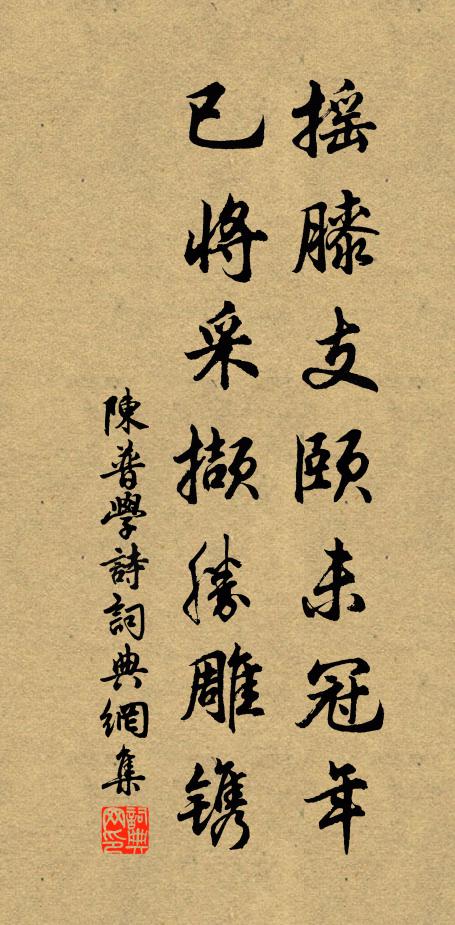 摇膝支颐未冠年
已将采撷勝雕镌
陳普學詩詞典網集
詞典
网印